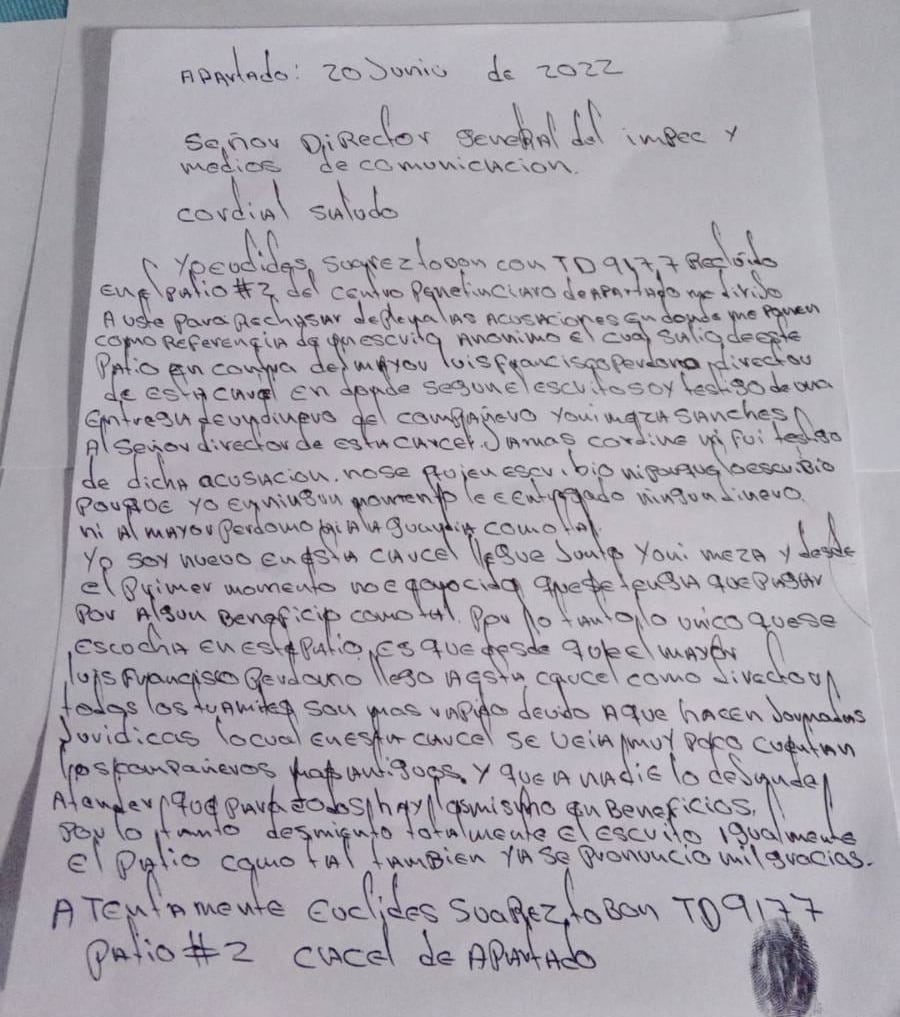 APArtado: 20 Junio de 2022
Señor DiRector geneRAl del inpec y
medios de comunicacion.
cordial saludo
Yo eudides suarez tooon con TD 9177 Recluido
en el patio #2 del centro penetinciaro de APArtado me dirijo
A uste para Rechasar de plena las Acusaciones en donde me ponen
como Referencia de un escrito Anonimo el cual salio de este
Patio en contra del mayor luis francisco perdomo director
de esta carcel en donde segun el escrito soy testigo de una
entrega de un dinero del compañero youi meza sanches
Al Señor director de esta carcel. Jamas cordine ni fui testigo
de dicha acusacion. nose quien escribio ni porque lo escribio
porque yo en ningun momento le e entregado ningun dinero
ni Al mayor Perdomo ni A la guardia como tal.
Yo soy nuevo en esta carcel llegue Junto Youi meza y desde
el primer momento no e conocido que se tenga que pagar
por Algun Beneficio como tal. Por lo tanto lo unico que se
escocha en este patio es que desde que el mayor
luis francisco Perdomo llego A esta carcel como director
todos los tramites son mas rapido devido A que hacen Jornadas
Juridicas locual en esta carcel se veia muy poco cuentan
los compañeros mas antiguos. y que A nadie lo desanda
Atender que para todos hay lo mismo en Beneficios.
por lo tanto desmiento totalmente el escrito igualmente
el patio como tal tambien ya se pronuncio mil gracias.
ATentamente Euclides Suarez toBon TD9177
patio #2 cacel de APArtAdo